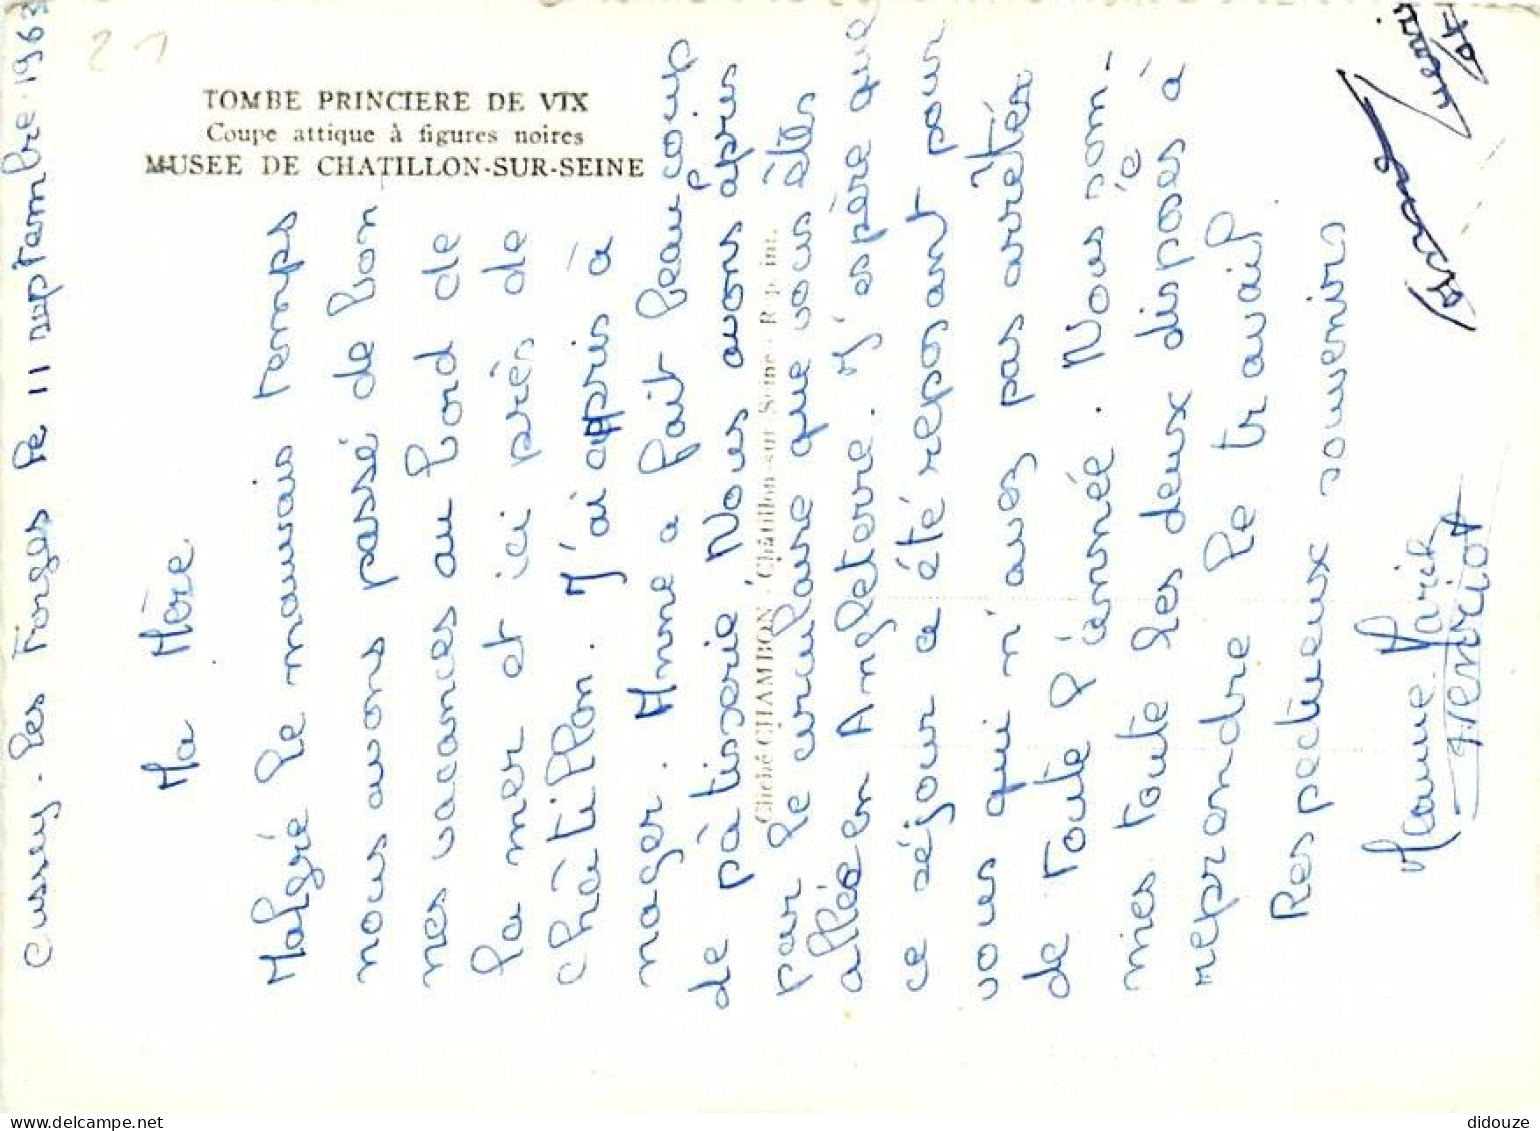 21
TOMBE PRINCIERE DE VIX
Coupe attique à figures noires
MUSEE DE CHATILLON-SUR-SEINE
Cliché CHAMBON - Châtillon-sur-Seine - Rep. int.
Cussey-les Forges le 11 septembre 1963
Ma Mère
Malgré le mauvais temps
nous avons passé de bon
nes vacances au bord de
la mer et ici près de
châtillon. J'ai appris à
nager. Anne a fait beaucoup
de pâtisserie Nous avons appris
par le circulaire que vous êtes
allée en Angleterre. J'espère que
ce séjour a été reposant pour
vous qui n'avez pas arrêter
de toute l'année. Nous som-
mes toute les deux disposés à
reprendre le travail
Respectueux souvenirs
Marie
Henriot
didouze